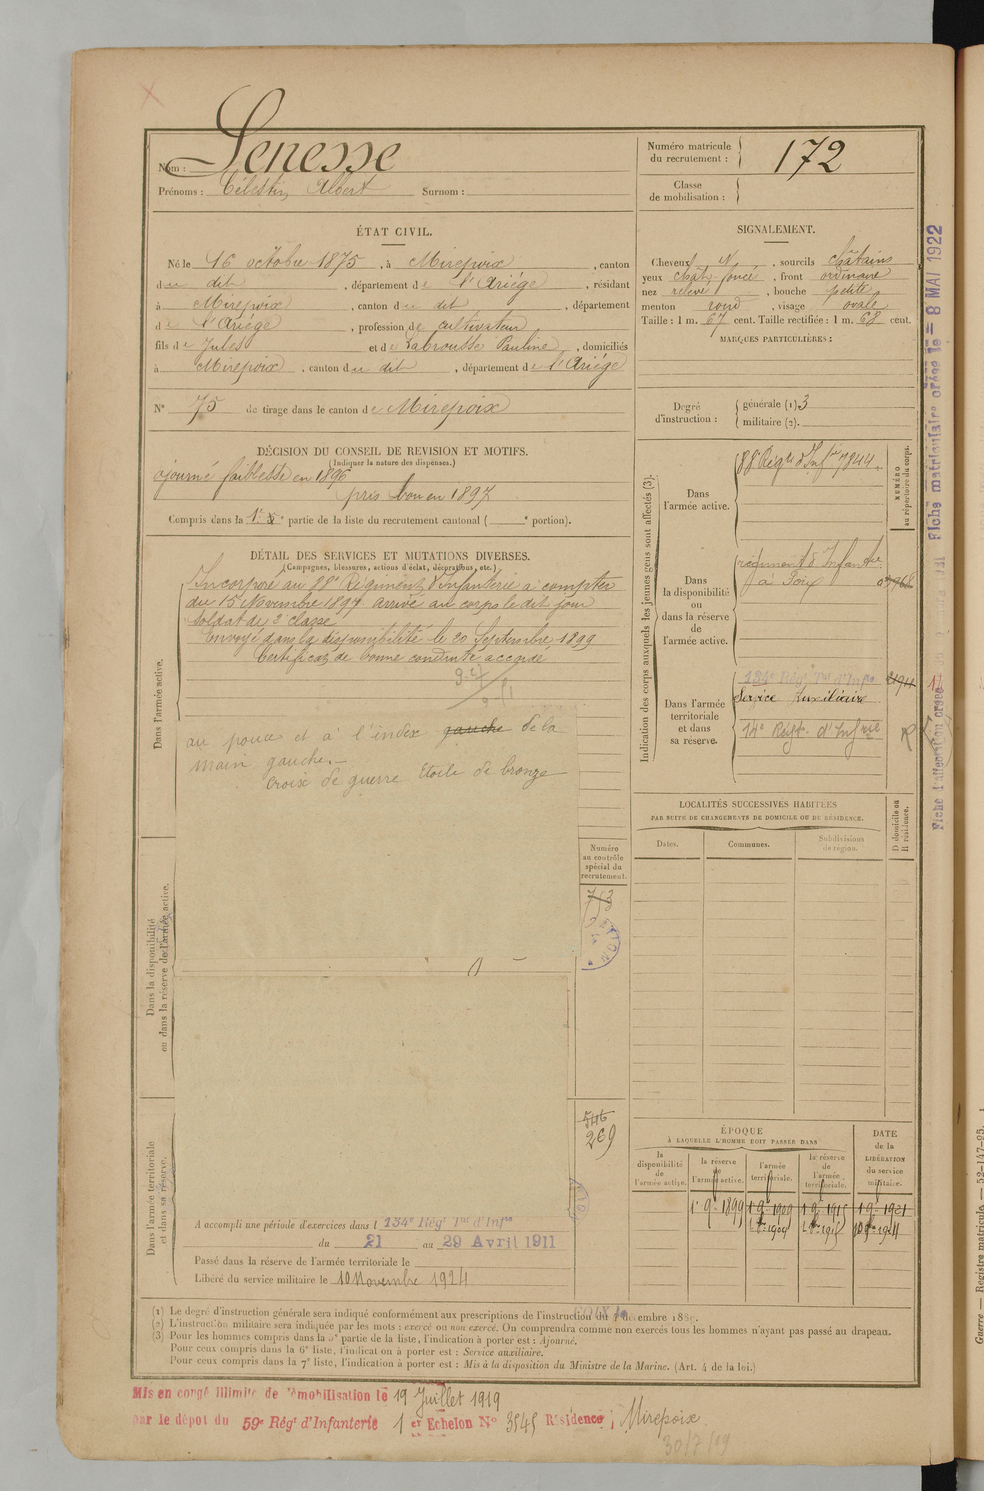 Nom : Senesse
Prénoms : Célestin Albert Surnom :
Numéro matricule du recrutement : 172
Classe de mobilisation :
ÉTAT CIVIL.
Né le 16 octobre 1875, à Mirepoix, canton
du dit, département de l'Ariége, résidant
à Mirepoix, canton du dit, département
de l'Ariége, profession de cultivateur
fils de Jules et de Labrousse Pauline, domiciliés
à Mirepoix, canton du dit, département de l'Ariége
N° 75 de tirage dans le canton de Mirepoix
DÉCISION DU CONSEIL DE REVISION ET MOTIFS.
(Indiquer la nature des dispenses.)
ajourné faiblesse en 1896
pris bon en 1897
Compris dans la 1re partie de la liste du recrutement cantonal ( e portion).
DÉTAIL DES SERVICES ET MUTATIONS DIVERSES.
(Campagnes, blessures, actions d'éclat, décorations, etc.)
Incorporé au 88e Régiment d'Infanterie à compter
du 15 Novembre 1897 arrivé au corps le dit jour
soldat de 2e classe
Envoyé dans la disponibilité le 20 Septembre 1899
Certificat de bonne conduite accordé
au pouce et à l'index gauche de la
main gauche.
Croix de guerre Etoile de bronze
Dans l'armée active.
Dans la disponibilité
ou dans la réserve de l'armée active.
Dans l'armée territoriale
et dans sa réserve.
Numéro
au contrôle
spécial du
recrutement.
753
546
269
A accompli une période d'exercices dans l 134e Régt Tal d'Infie
du 21 au 29 Avril 1911
Passé dans la réserve de l'armée territoriale le
Libéré du service militaire le 10 Novembre 1924
SIGNALEMENT.
Cheveux N, sourcils châtains
yeux chât. foncé, front ordinaire
nez relevé, bouche petite
menton rond, visage ovale
Taille : 1 m. 67 cent. Taille rectifiée : 1 m. 68 cent.
MARQUES PARTICULIÈRES :
Degré d'instruction : générale (1). 3
militaire (2).
Indication des corps auxquels les jeunes gens sont affectés (3).
NUMÉRO
au répertoire du corps.
Dans
l'armée active.
88e Régt d'Infie 7844
Dans
la disponibilité
ou
dans la réserve
de
l'armée active.
régiment d'Infantie
à Foix
Dans l'armée
territoriale
et dans
sa réserve.
134e Régt Tal d'Infie
Service Auxiliaire
14e Régt. d'Infrie
LOCALITÉS SUCCESSIVES HABITÉES
PAR SUITE DE CHANGEMENTS DE DOMICILE OU DE RÉSIDENCE.
Dates.
Communes.
Subdivisions
de région.
D domicile ou
R résidence.
ÉPOQUE
À LAQUELLE L'HOMME DOIT PASSER DANS
DATE
de la
LIBÉRATION
du service
militaire.
la
disponibilité
de
l'armée active.
la réserve
de
l'armée active.
l'armée
territoriale.
la réserve
de
l'armée
territoriale.
1er 9bre 1899
1er 9bre 1909
1er 9bre 1915
1er 9bre 1921
(1) Le degré d'instruction générale sera indiqué conformément aux prescriptions de l'instruction du décembre 188
(2) L'instruction militaire sera indiquée par les mots : exercé ou non exercé. On comprendra comme non exercés tous les hommes n'ayant pas passé au drapeau.
(3) Pour les hommes compris dans la 5e partie de la liste, l'indication à porter est : Ajourné.
Pour ceux compris dans la 6e liste, l'indication à porter est : Service auxiliaire.
Pour ceux compris dans la 7e liste, l'indication à porter est : Mis à la disposition du Ministre de la Marine. (Art. 4 de la loi.)
Mis en congé illimité de démobilisation le 19 Juillet 1919
par le dépôt du 59e Régt d'Infanterie 1er Echelon N° 3545 Résidence ; Mirepoix
30/7/19
Fiche matriculaire créée le = 8 MAI 1922
Guerre — Registre matricule — 52-147-95.